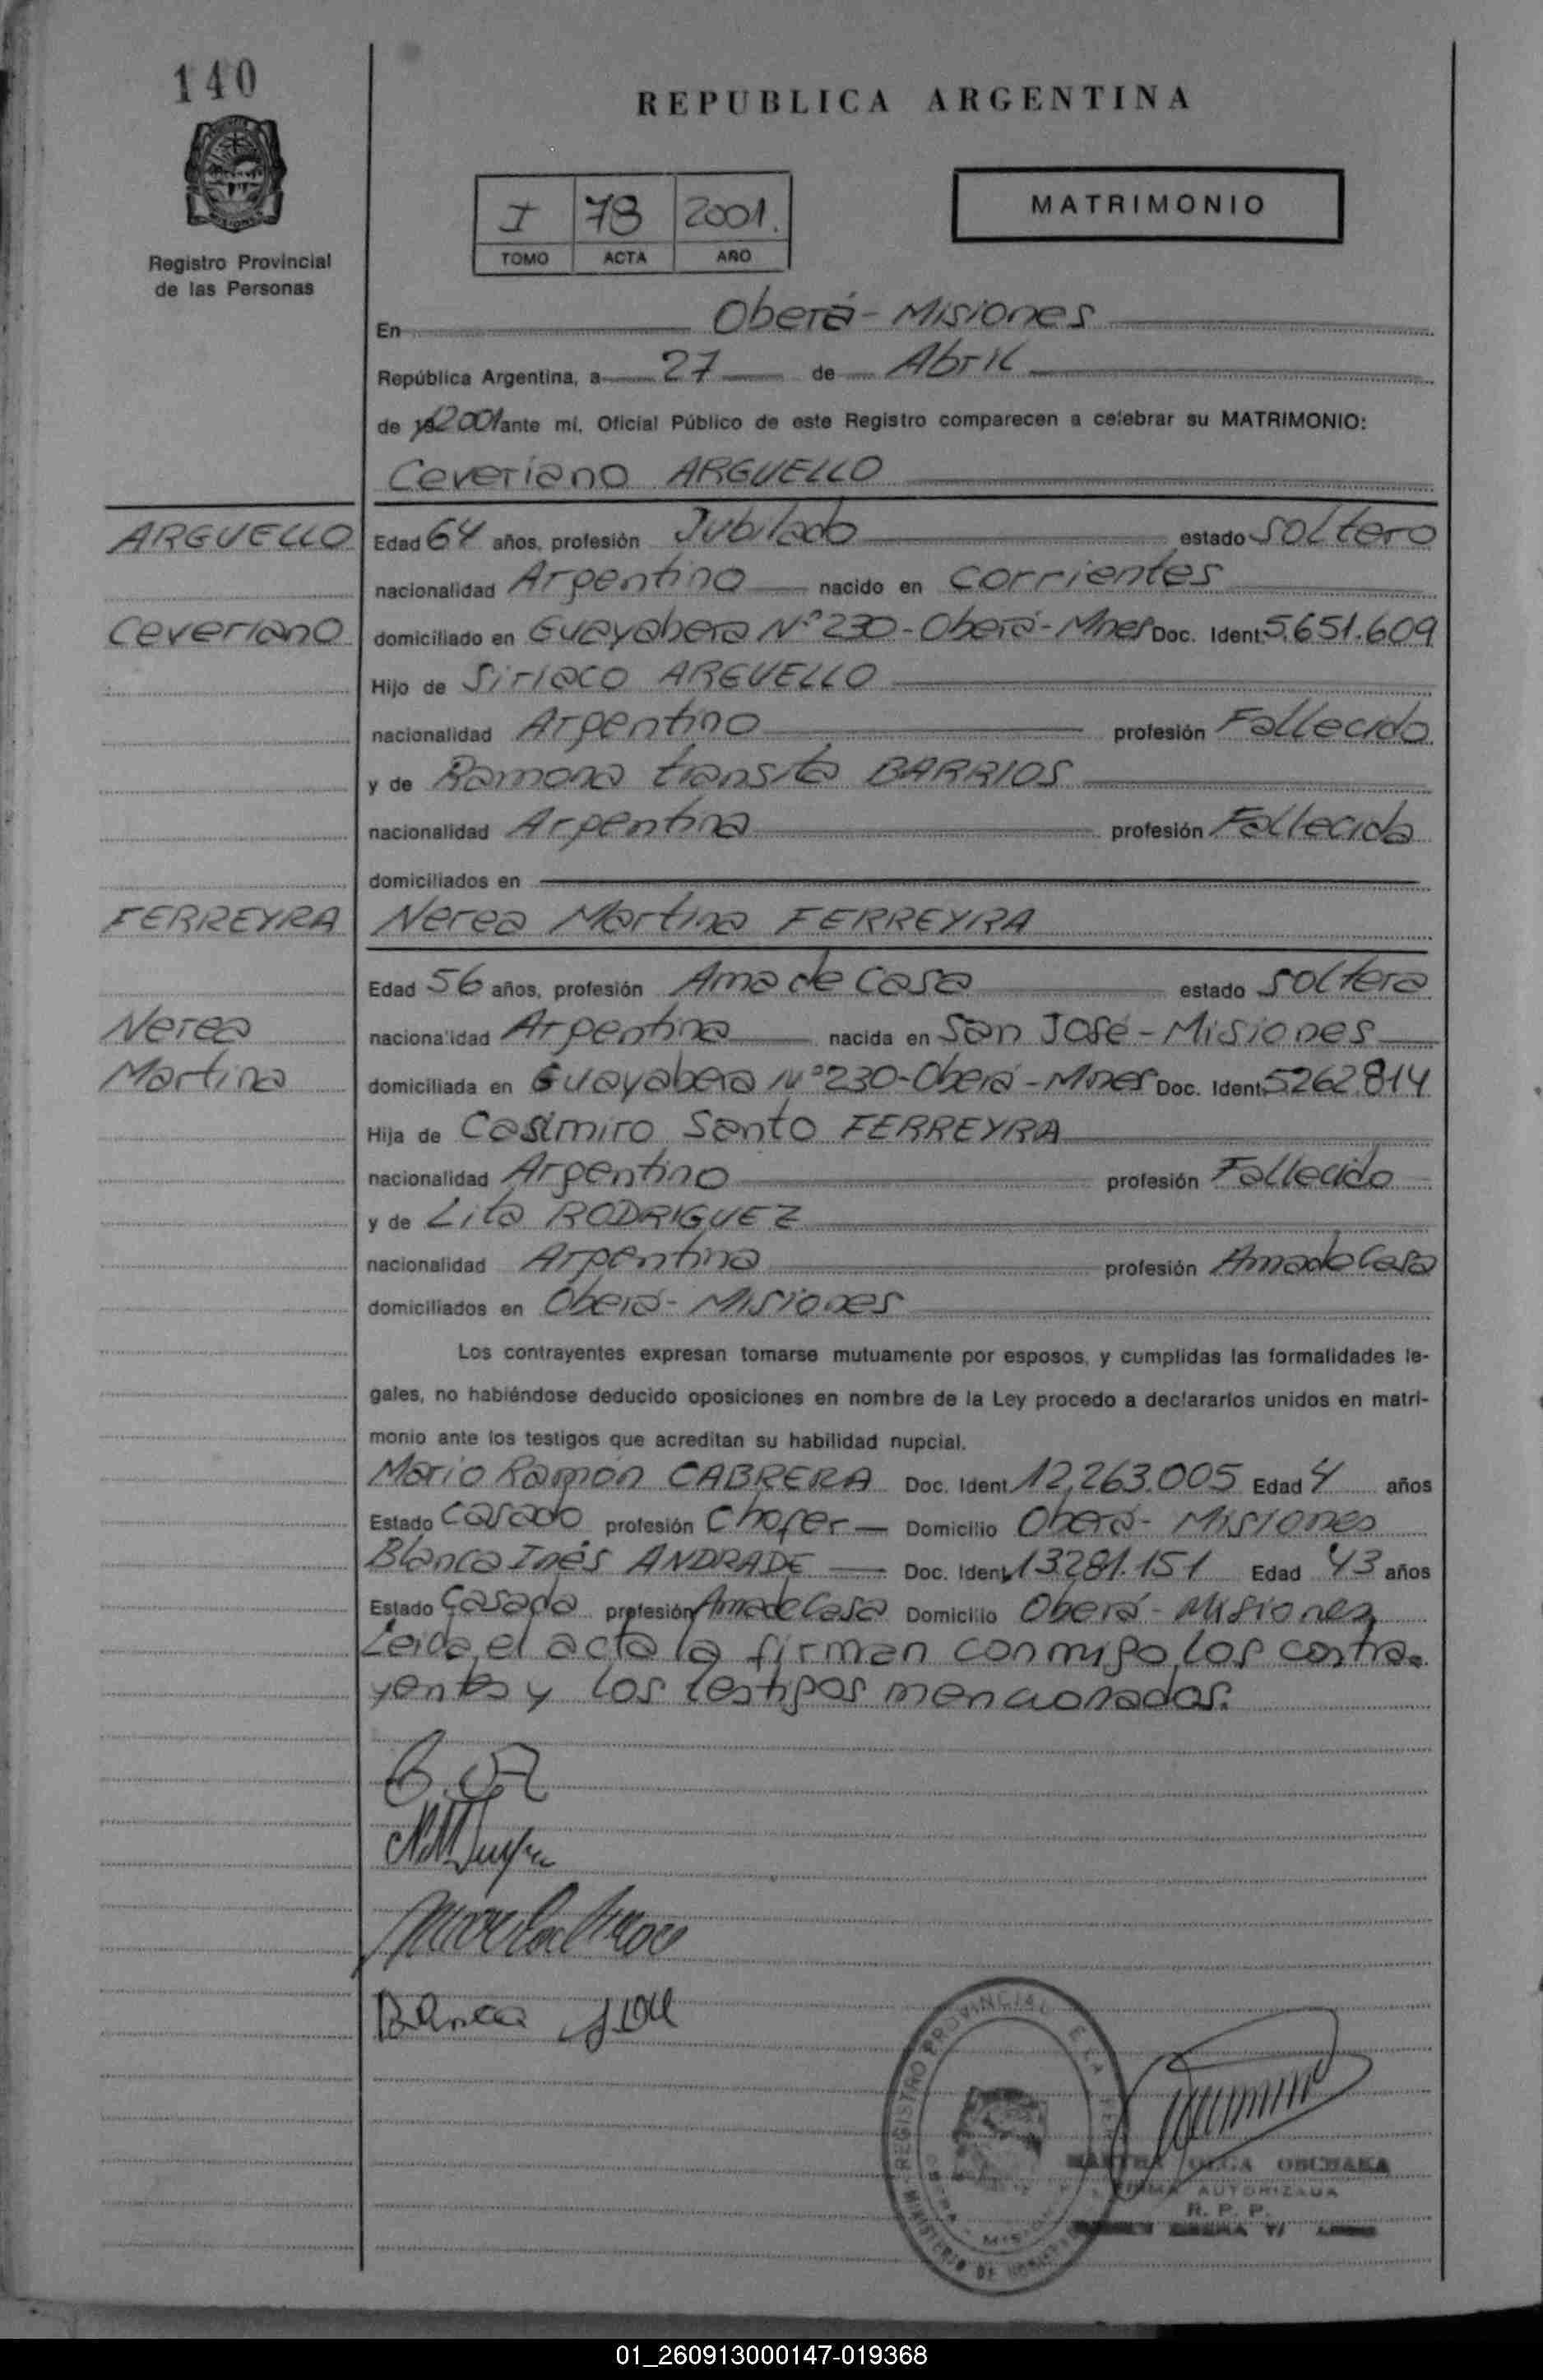 140
REPUBLICA ARGENTINA
I 78 2001.
TOMO ACTA AÑO
MATRIMONIO
Registro Provincial
de las Personas
En Oberá - Misiones
República Argentina, a 27 de Abril
de 2001 ante mí, Oficial Público de este Registro comparecen a celebrar su MATRIMONIO:
Ceveriano ARGUELLO
ARGUELLO Edad 64 años, profesión Jubilado estado soltero
nacionalidad Argentino nacido en Corrientes
Ceveriano domiciliado en Guayabera Nº 230 - Oberá - Mnes Doc. Ident. 5.651.609
Hijo de Siriaco ARGUELLO
nacionalidad Argentino profesión Fallecido
y de Ramona transita BARRIOS
nacionalidad Argentina profesión Fallecida
domiciliados en
FERREYRA Nerea Martina FERREYRA
Edad 56 años, profesión Ama de Casa estado soltera
Nerea nacionalidad Argentina nacida en San José - Misiones
Martina domiciliada en Guayabera Nº 230 - Oberá - Mnes Doc. Ident. 5262.814
Hija de Casimiro Santo FERREYRA
nacionalidad Argentino profesión Fallecido
y de Lita RODRIGUEZ
nacionalidad Argentina profesión Ama de Casa
domiciliados en Oberá - Misiones
Los contrayentes expresan tomarse mutuamente por esposos, y cumplidas las formalidades le-
gales, no habiéndose deducido oposiciones en nombre de la Ley procedo a declararlos unidos en matri-
monio ante los testigos que acreditan su habilidad nupcial.
Mario Ramón CABRERA Doc. Ident. 12.263.005 Edad 4 años
Estado Casado profesión Chofer Domicilio Oberá - Misiones
Blanca Inés ANDRADE Doc. Ident. 13281.151 Edad 43 años
Estado Casada profesión Ama de Casa Domicilio Oberá - Misiones
Leida, el acta la firman conmigo, los contra-
yentes y los testigos mencionados.
Blanca
REGISTRO PROVINCIAL
MINISTERIO DE
OLGA
FIRMA AUTORIZADA
R. P. P.
01_260913000147-019368